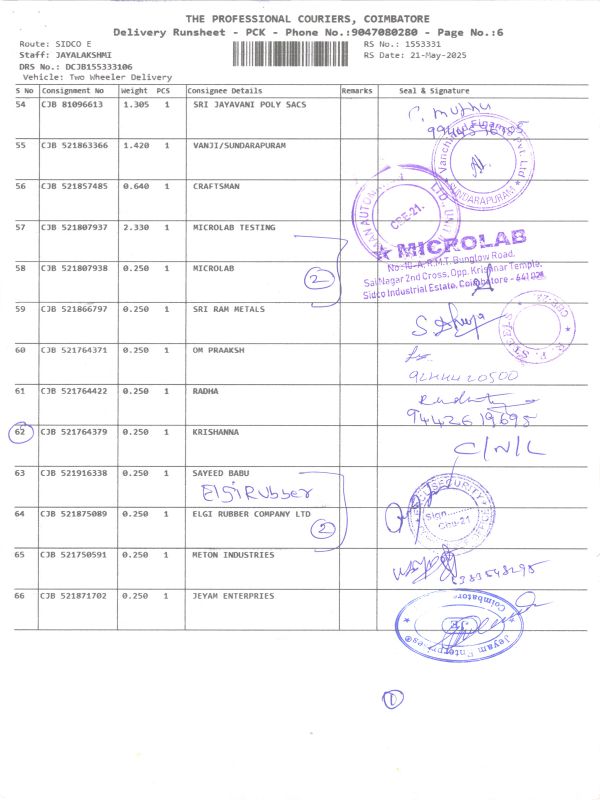 THE PROFESSIONAL COURIERS, COIMBATORE
Delivery Runsheet - PCK - Phone No.:9047080280 - Page No.:6
Route: SIDCO E
RS No.: 1553331
Staff: JAYALAKSHMI
RS Date: 21-May-2025
DRS No.: DCJB155333106
Vehicle: Two Wheeler Delivery
S No Consignment No Weight PCS Consignee Details Remarks Seal & Signature
54 CJB 81096613 1.305 1 SRI JAYAVANI POLY SACS
55 CJB 521863366 1.420 1 VANJI/SUNDARAPURAM
SUNDARAPURAM
56 CJB 521857485 0.640 1 CRAFTSMAN
CBE-21.
57 CJB 521807937 2.330 1 MICROLAB TESTING
★ MICROLAB
No:16-A, R.M.T. Bunglow Road,
58 CJB 521807938 0.250 1 MICROLAB 2
Sai Nagar 2nd Cross, Opp. Krishnar Temple,
Sidco Industrial Estate, Coimbatore - 641 021
59 CJB 521866797 0.250 1 SRI RAM METALS
60 CJB 521764371 0.250 1 OM PRAAKSH
9244420500
61 CJB 521764422 0.250 1 RADHA
9442619695
62 CJB 521764379 0.250 1 KRISHANNA
C/N/L
63 CJB 521916338 0.250 1 SAYEED BABU
Elgi Rubber
SECURITY
Sign
64 CJB 521875089 0.250 1 ELGI RUBBER COMPANY LTD 2
Cbe-21
65 CJB 521750591 0.250 1 METON INDUSTRIES
66 CJB 521871702 0.250 1 JEYAM ENTERPRIES
Coimbatore
J.E.
Jeyam Enterprises
1